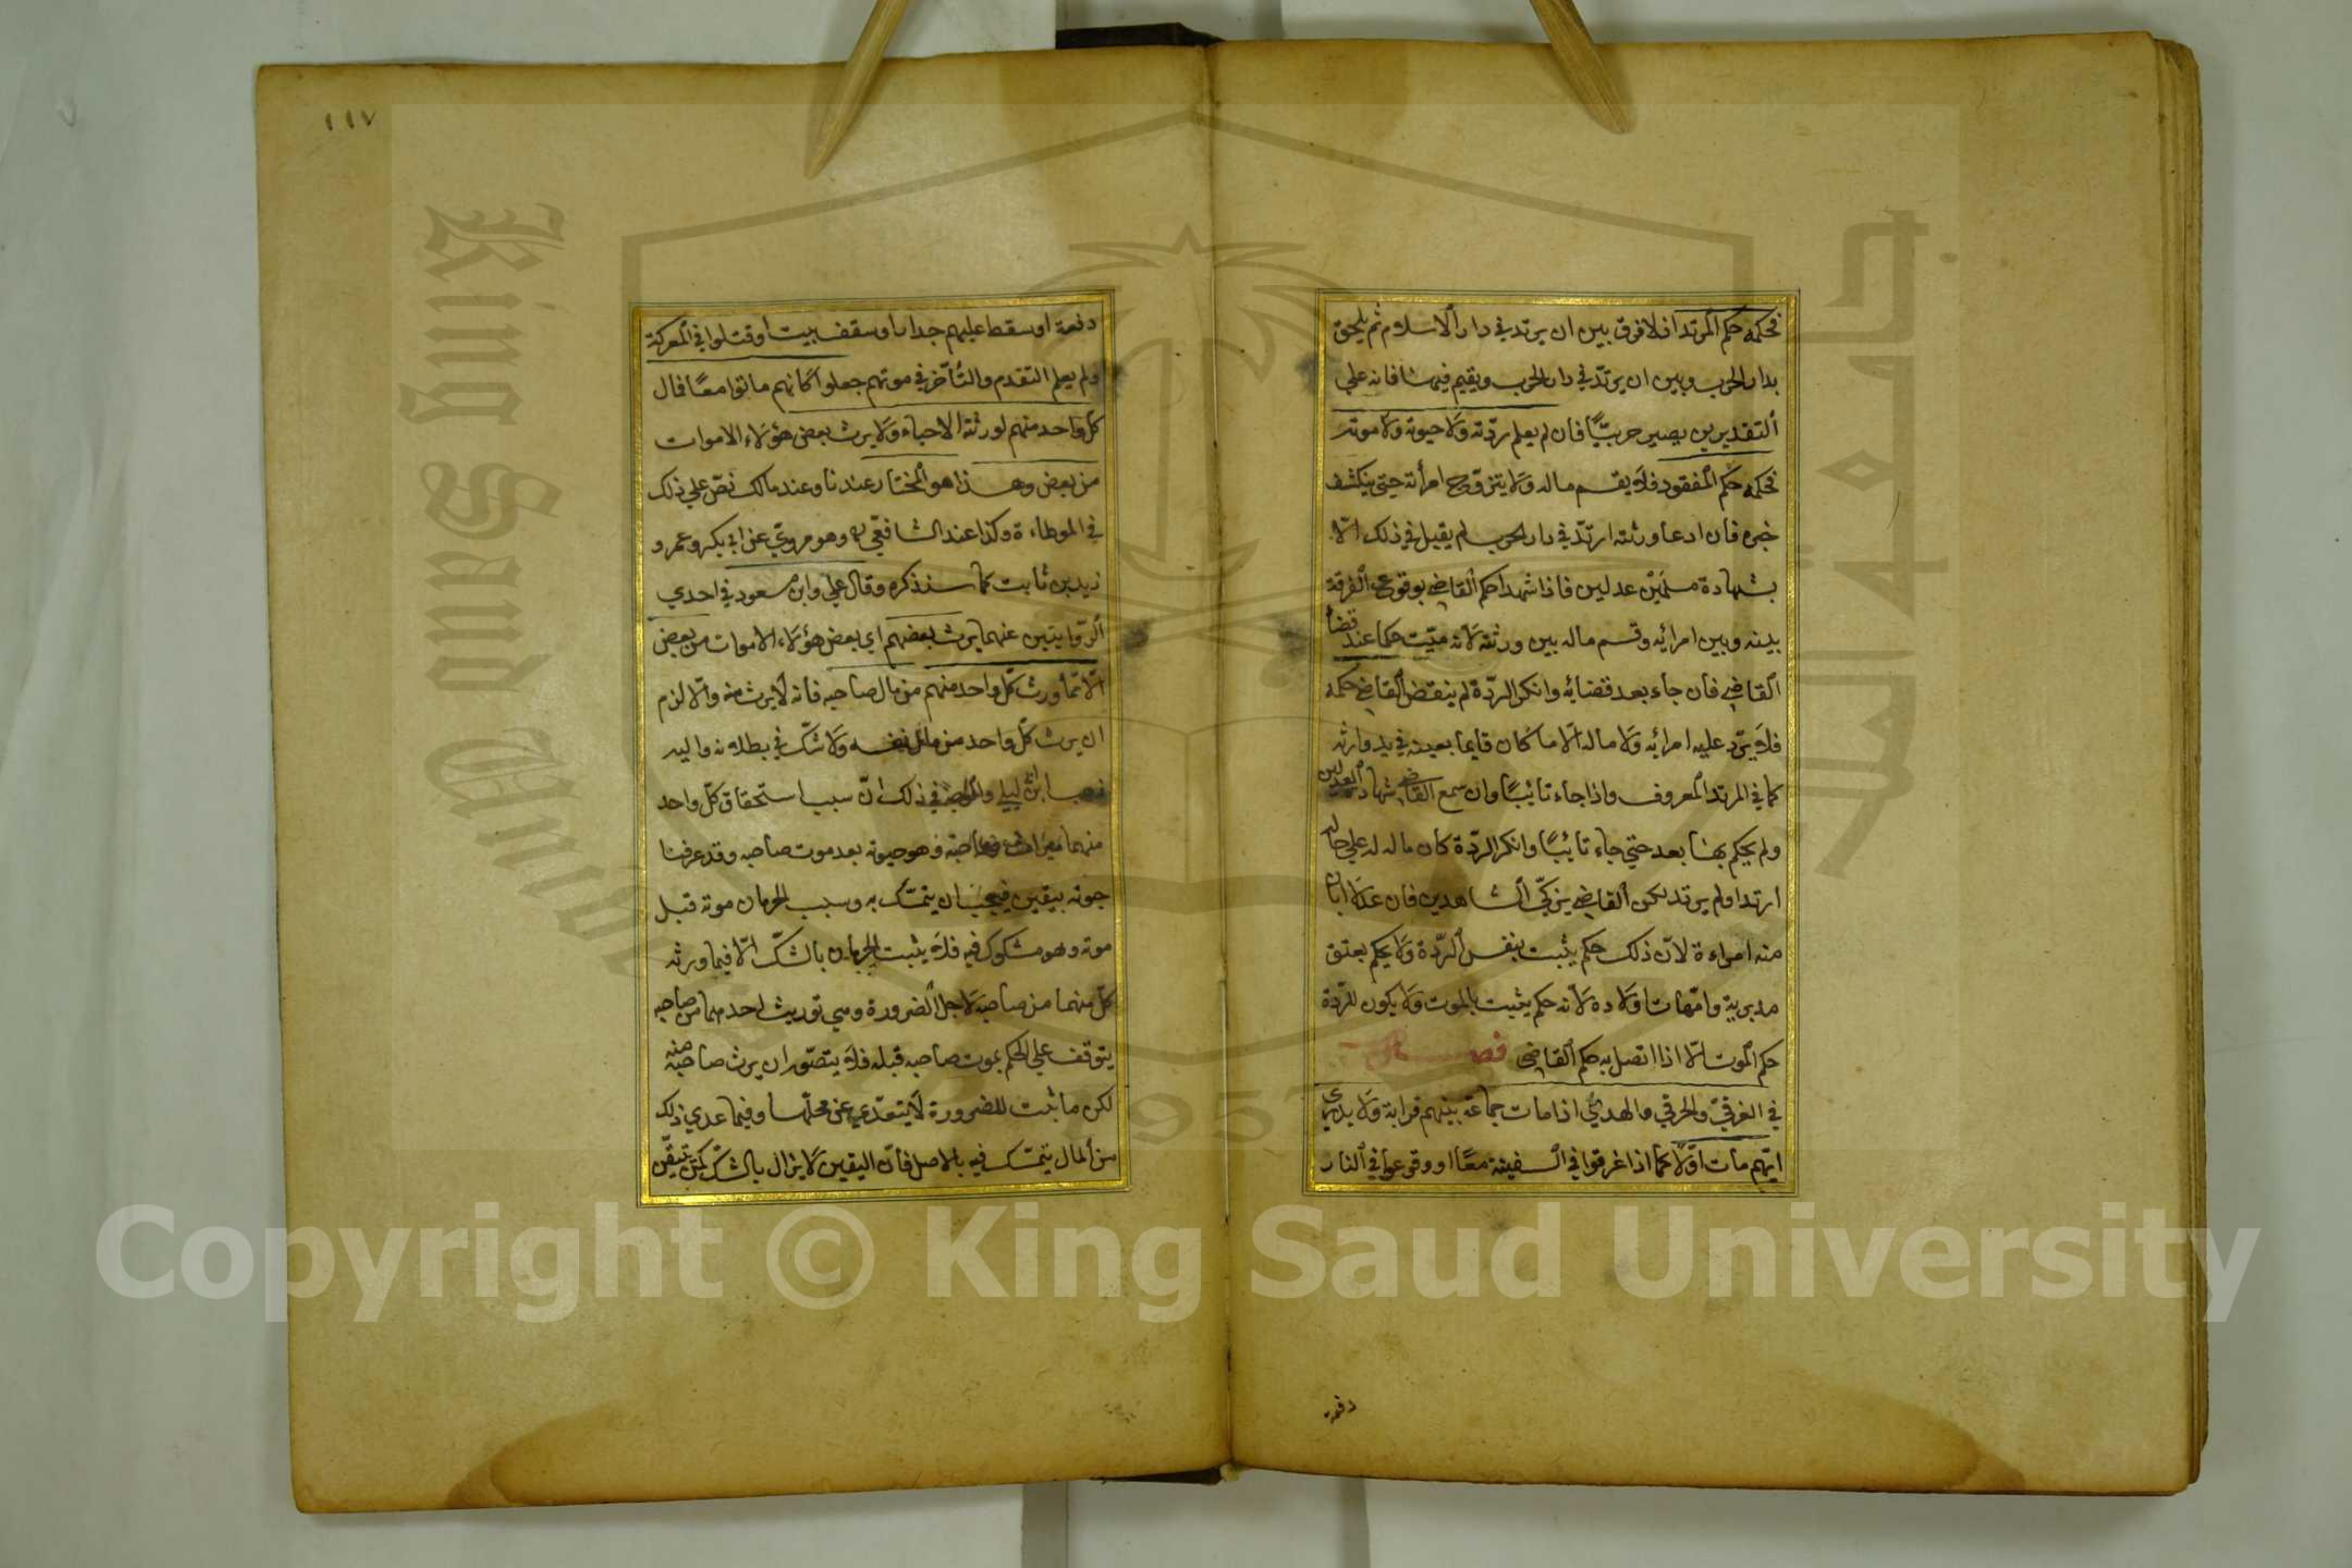 فحكمه حكم المرتد اذ لا فرق بين ان يرتد في دار الاسلام ثم يلحق
بدار الحرب وبين ان يرتدّ في دار الحرب ويقيم فيها فانه علي
التقديرين يصير حربيًّا فان لم يعلم ردّته ولا حيوته ولا موته
فحكمه حكم المفقود فلا يقسم ماله ولا يتزوّج امرأته حتي ينكشف
خبره فان ادعا ورثته ارتدّ في دار الحرب لم يقبل في ذلك الّا
بشهادة مسلمَيْن عدلين فاذا شهدا حكم القاضي بوقوع الفرقة
بينه وبين امرائه وقسم ماله بين ورثته لانه ميّت حكما عند قضأ
القاضي فان جاء بعد قضائه وانكر الردّة لم ينقض القاضي حكمه
فلا يردّ عليه امرائه ولا ماله الّا ما كان قايما بعينه في يد وارثه
كما في المرتد المعروف واذا جاء تائبًا وان سمع القاضي شهادة العدلين
ولم يحكم بها بعد حتي جاء تائبًا وانكر الردّة كان ماله له علي حاله
ارتد او لم يرتد لكن القاضي يزكّي الشاهدين فان عدلا ابان
منه امراءة لانّ ذلك حكم يثبت بنفس الردّة ولا يحكم بعتق
مدبريه وامّهات اولاده لانه حكم يثبت بالموت ولا يكون للردّة
حكم الموت الّا اذا اتصل به حكم القاضي فصل
في الغرقي والحرقي والهدمي اذا مات جماعة بينهم قرابة ولا يدري
ايّهم مات اوّلا كما اذا غرقوا في السفينة معًا او وقوعوا في النار
دفعة
١١٧
دفعة او سقط عليهم جدار او سقف بيت او قتلوا في المعركة
ولم يعلم التقدم والتأخّر في موتهم جعلوا كانهم ماتوا معًا فمال
كلّ واحد منهم لورثته الاحياء ولا يرث بعض هؤلاء الاموات
من بعض وهذا هو المختار عندنا وعند مالك نصّ علي ذلك
في الموطاءة وكذا عند الشافعيّ وهو مرويّ عن ابي بكر وعمر و
زيد بن ثابت كما سنذكره وقال علي وابن مسعود في احدي
الرّوايتين عنهما يرث بعضهم اي بعض هؤلاء الاموات من بعض
الّا ممّا ورث كلّ واحد منهم من مال صاحبه فانه لا يرث منه والّا لزم
ان يرث كلّ واحد من مال نفسه ولا شكّ في بطلانه واليه
ذهب ابن ابي ليلي في ذلك انّ سبب استحقاق كلّ واحد
منهما ميراث صاحبه وهو حيوته بعد موت صاحبه وقد عرفنا
حيوته بيقين فيجب ان يتمسّك به وسبب الحرمان موته قبل
موته وهو مشكوك فيه فلا يثبت الحرمان بالشكّ الّا فيما ورثه
كلّ منهما من صاحبه لاجل الضرورة وهي توريث احدهما من صاحبه
يتوقف علي الحكم بموت صاحبه قبله فلا يتصوّر ان يرث صاحبه منه
لكن ما ثبت للضرورة لا يتعدّي عن محلّها وفيما عدي ذلك
من المال يتمسّك فيه بالاصل فانّ اليقين لا يزال بالشكّ كمن تيقّن
Copyright © King Saud University